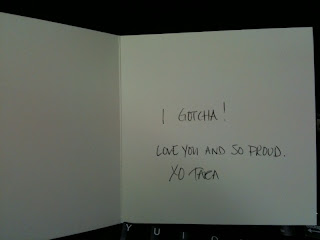 I GOTCHA!
LOVE YOU AND SO PROUD.
XO TARA
Y U I O